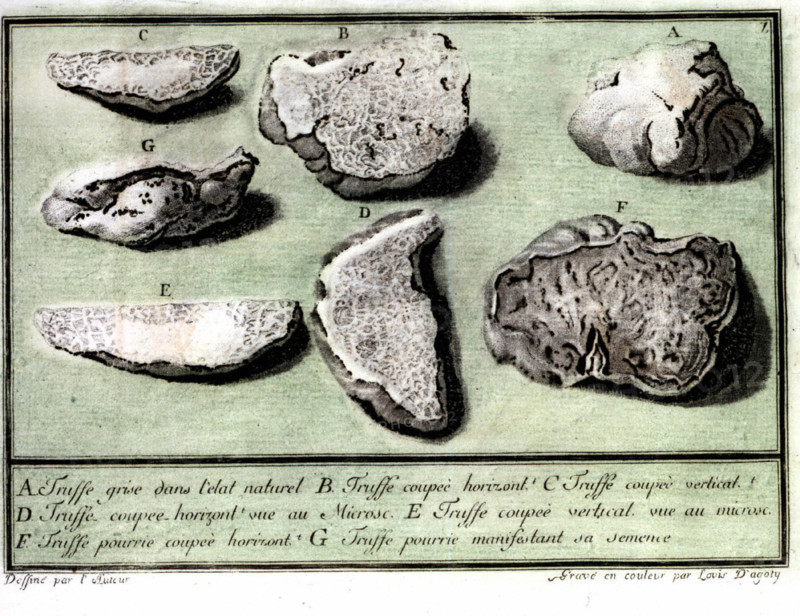 C B A 1.
G
D F
E
A. Truffe grise dans l'etat naturel B. Truffe coupeè horizont.t C Truffe coupeè vertical.t
D Truffe coupee horizont.t vue au Microsc. E Truffe coupeè vertical. vue au microsc.
F Truffe pourrie coupeè horizont.t G Truffe pourrie manifestant sa semence
Dessiné par l'Auteur Gravé en couleur par Louis D'agoty